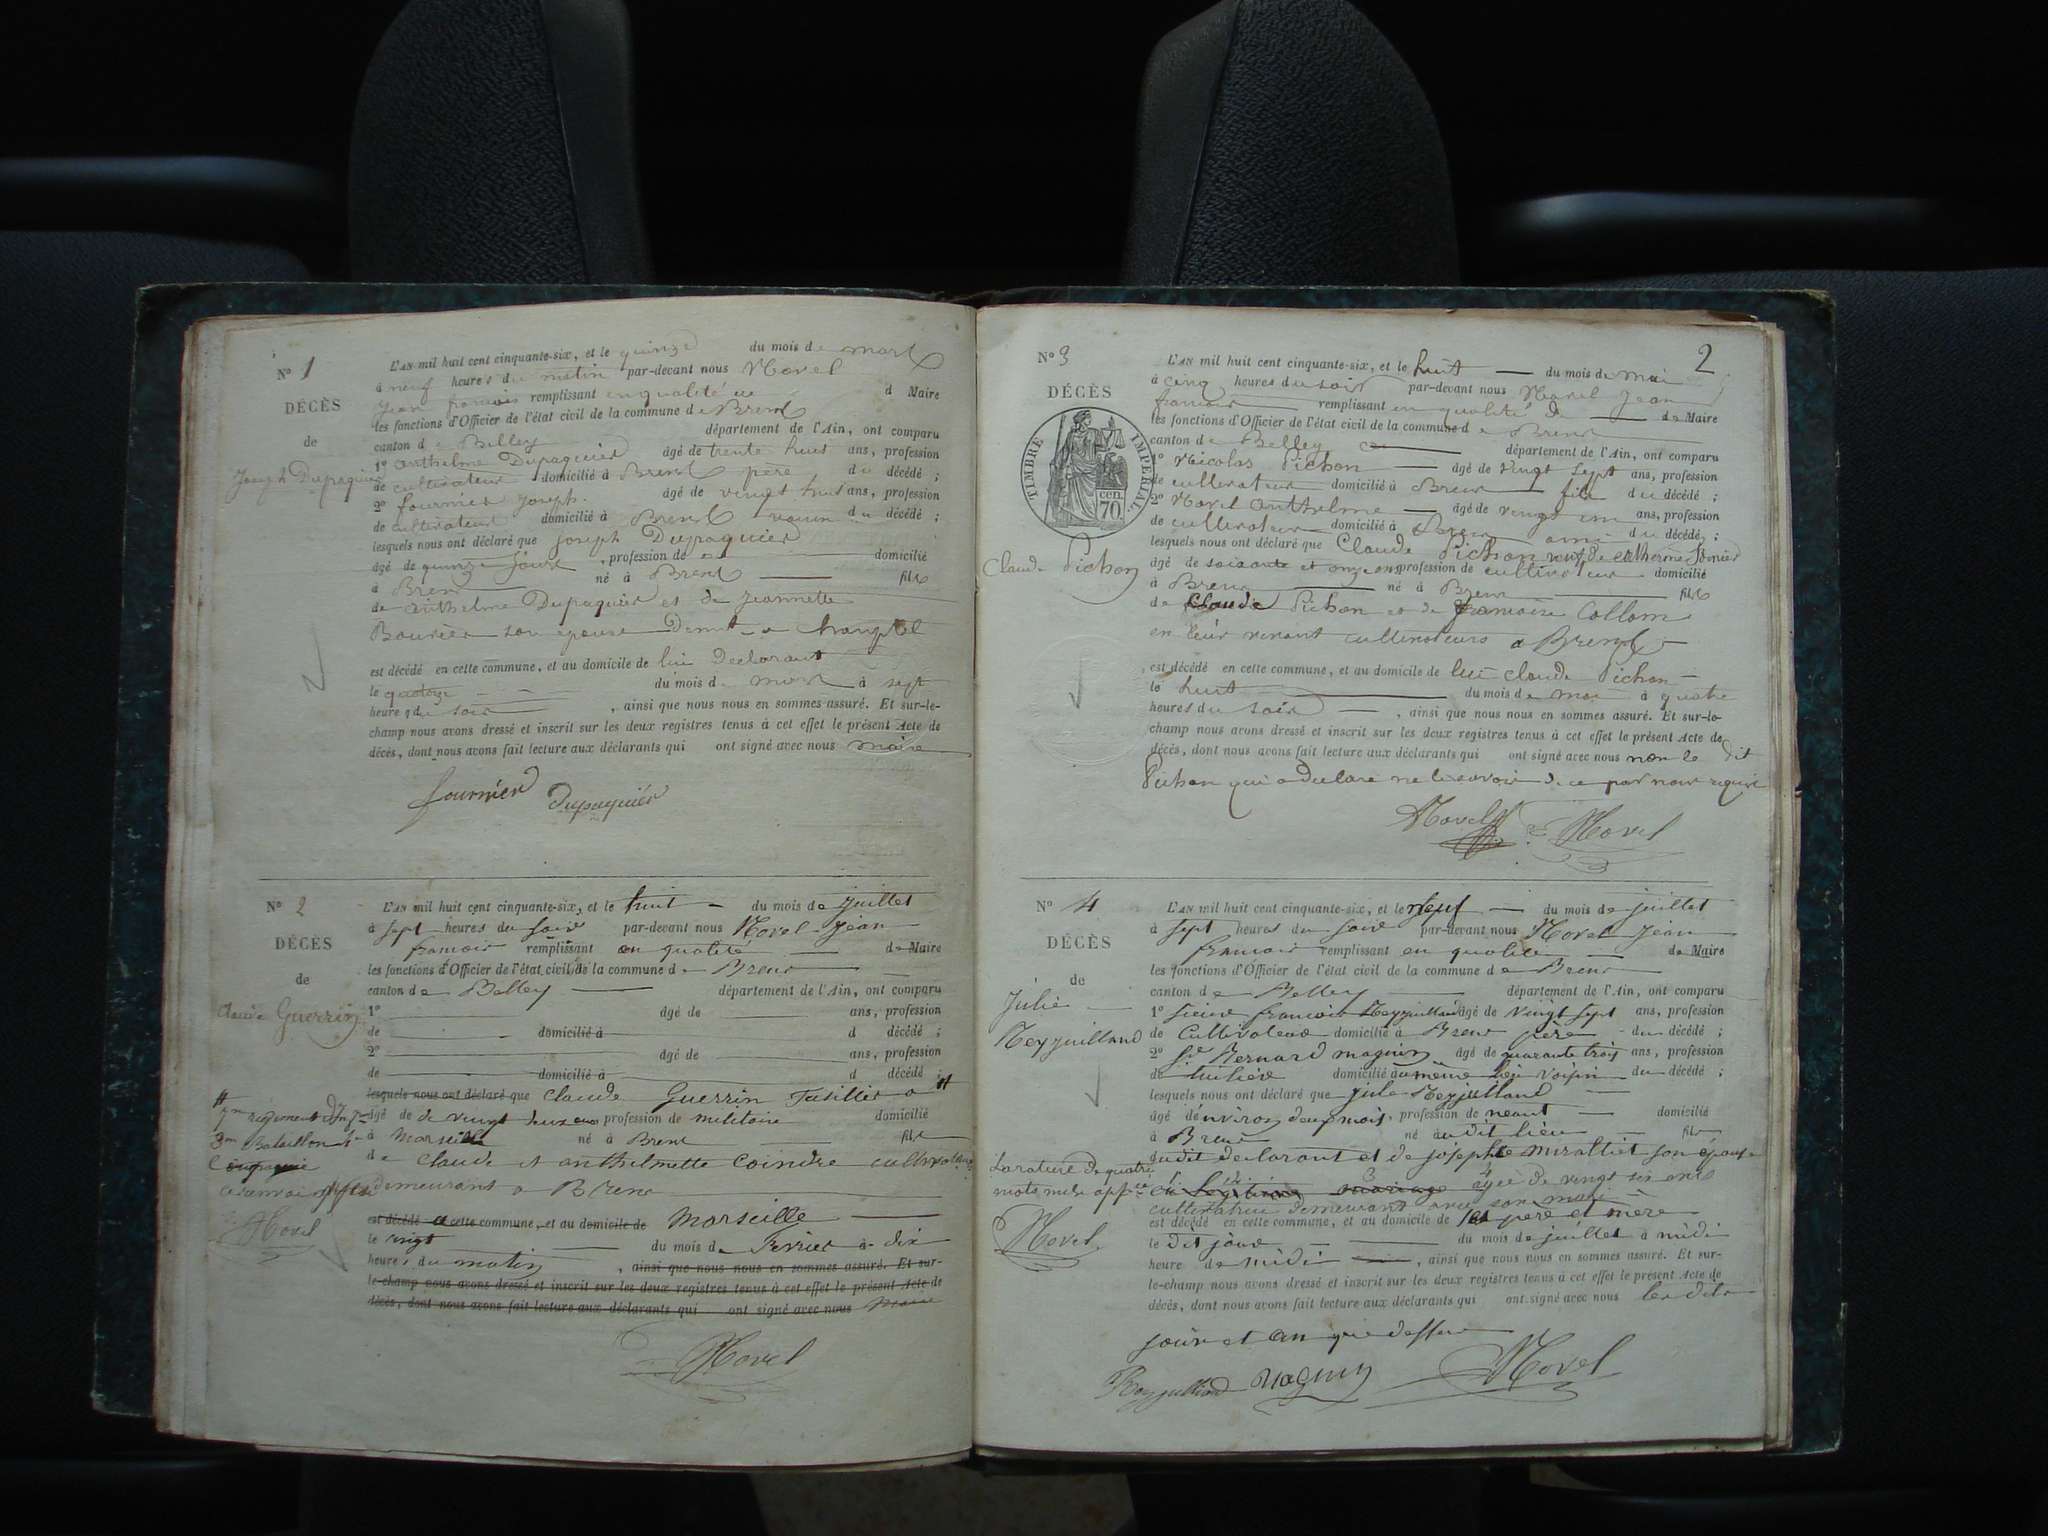 N° 1
DÉCÈS
de
Joseph Dupaquier
L'AN mil huit cent cinquante-six, et le quinze du mois de mars
à neuf heures du matin par-devant nous Morel
jean francois remplissant en qualité de d Maire
les fonctions d'Officier de l'état civil de la commune de Brens
canton de Belley département de l'Ain, ont comparu
1° anthelme Dupaquier âgé de trente huit ans, profession
de cultivateur domicilié à Brens père du décédé ;
2° fournier joseph âgé de vingt huit ans, profession
de cultivateur domicilié à Brens voisin du décédé ;
lesquels nous ont déclaré que joseph Dupaquier
âgé de quinze jours , profession de domicilié
à Brens né à Brens fils
de anthelme Dupaquier et de jeannette
Bouvier son épouse Demt a
est décédé en cette commune, et au domicile de lui Declarant
le quatorze du mois de mars à sept
heures du soir , ainsi que nous nous en sommes assuré. Et sur-le-
champ nous avons dressé et inscrit sur les deux registres tenus à cet effet le présent Acte de
décès, dont nous avons fait lecture aux déclarants qui ont signé avec nous maire
fournier dupaquier
N° 2
DÉCÈS
de
Claude Guerrin
L'AN mil huit cent cinquante-six, et le huit du mois de juillet
à sept heures du soir par-devant nous Morel jean
francois remplissant en qualité de Maire
les fonctions d'Officier de l'état civil de la commune de Brens
canton de Belley département de l'Ain, ont comparu
1° âgé de ans, profession
de domicilié à d décédé ;
2° âgé de ans, profession
de domicilié à d décédé ;
lesquels nous ont déclaré que Claude Guerrin fusillier a
régiment
âgé de de vingt deux ans profession de militaire domicilié
3me Bataillon
à Marseille né à Brens fils
Compagnie
de Claude et anthelmette Coindre
demeurant a Brens
Morel
est décédé a cette commune, et au domicile de Marseille
le vingt du mois de fevrier à dix
heures du matin , ainsi que nous nous en sommes assuré. Et sur-
le-champ nous avons dressé et inscrit sur les deux registres tenus à cet effet le présent Acte de
décès, dont nous avons fait lecture aux déclarants qui ont signé avec nous maire
Morel
2
N° 3
DÉCÈS
TIMBRE IMPÉRIAL
cen. 70
Claude Pichon
L'AN mil huit cent cinquante-six, et le huit du mois de mai
à cinq heures du soir par-devant nous Morel jean
francois remplissant en qualité de de Maire
les fonctions d'Officier de l'état civil de la commune de Brens
canton de Belley département de l'Ain, ont comparu
1° Nicolas Pichon âgé de vingt sept ans, profession
de cultivateur domicilié à Brens fils du décédé ;
2° Morel anthelme âgé de vingt un ans, profession
de cultivateur domicilié à Brens ami du décédé ;
lesquels nous ont déclaré que Claude Pichon veuf de catherine
âgé de soixante et onze ans profession de cultivateur domicilié
à Brens né à Brens fils
de Claude Pichon et de francoise Collom
en leur vivant cultivateurs a Brens
est décédé en cette commune, et au domicile de lui claude Pichon
le huit du mois de mai à quatre
heures du soir , ainsi que nous nous en sommes assuré. Et sur-le-
champ nous avons dressé et inscrit sur les deux registres tenus à cet effet le présent Acte de
décès, dont nous avons fait lecture aux déclarants qui ont signé avec nous non le dit
Pichon qui a declaré ne le savoir de ce par nous requis
Morel Morel
N° 4
DÉCÈS
de
Julie
Reyjuilland
L'AN mil huit cent cinquante-six, et le neuf du mois de juillet
à sept heures du soir par-devant nous Morel jean
francois remplissant en qualité de Maire
les fonctions d'Officier de l'état civil de la commune de Brens
canton de Belley département de l'Ain, ont comparu
1° sieur francois Reyjuilland âgé de vingt sept ans, profession
de Cultivateur domicilié à Brens père du décédé ;
2° Sr Bernard magnin âgé de quarante trois ans, profession
de tuilier domicilié au même lieu voisin du décédé ;
lesquels nous ont déclaré que julie Reyjuilland
âgé d'environ deux mois, profession de neant domicilié
à Brens né au dit lieu fils
du dit declarant et de josephte miralliet son épouse
La rature de quatre
mots nulle appée
mariage agée de vingt six ans
cultivatrice demeurant avec son mari
Morel
est décédé en cette commune, et au domicile de ses père et mère
le dit jour du mois de juillet à midi
heure de midi , ainsi que nous nous en sommes assuré. Et sur-
le-champ nous avons dressé et inscrit sur les deux registres tenus à cet effet le présent Acte de
décès, dont nous avons fait lecture aux déclarants qui ont signé avec nous les dits
jour et an que dessus
Reyjuilland Magnin Morel